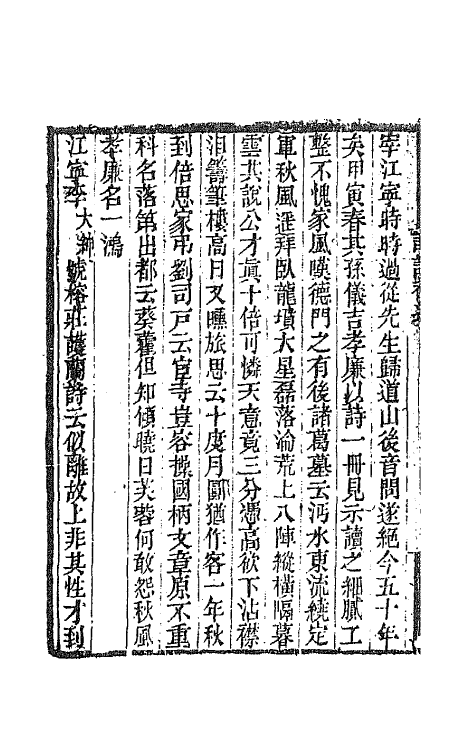 宰江寧時時過從先生歸道山後音問遂絕今五十年
矣甲寅春其孫儀吉孝廉以詩一冊見示讀之細膩工
整不愧家風嘆德門之有後諸葛墓云沔水東流繞定
軍秋風遥拜臥龍墳大星磊落淪荒上八陣縱橫隔暮
雲其說公才眞十倍可憐天意竟三分憑高欲下沾襟
淚籌筆樓高日又曛旅思云十度月圓猶作客一年秋
到倍思家弔劉司戶云宦寺豈容操國柄文章原不重
科名落第出都云葵藿但知傾曉日芙蓉何敢怨秋風
孝廉名一鴻
江寧李大紳號榕莊護蘭詩云似離故土非其性才到